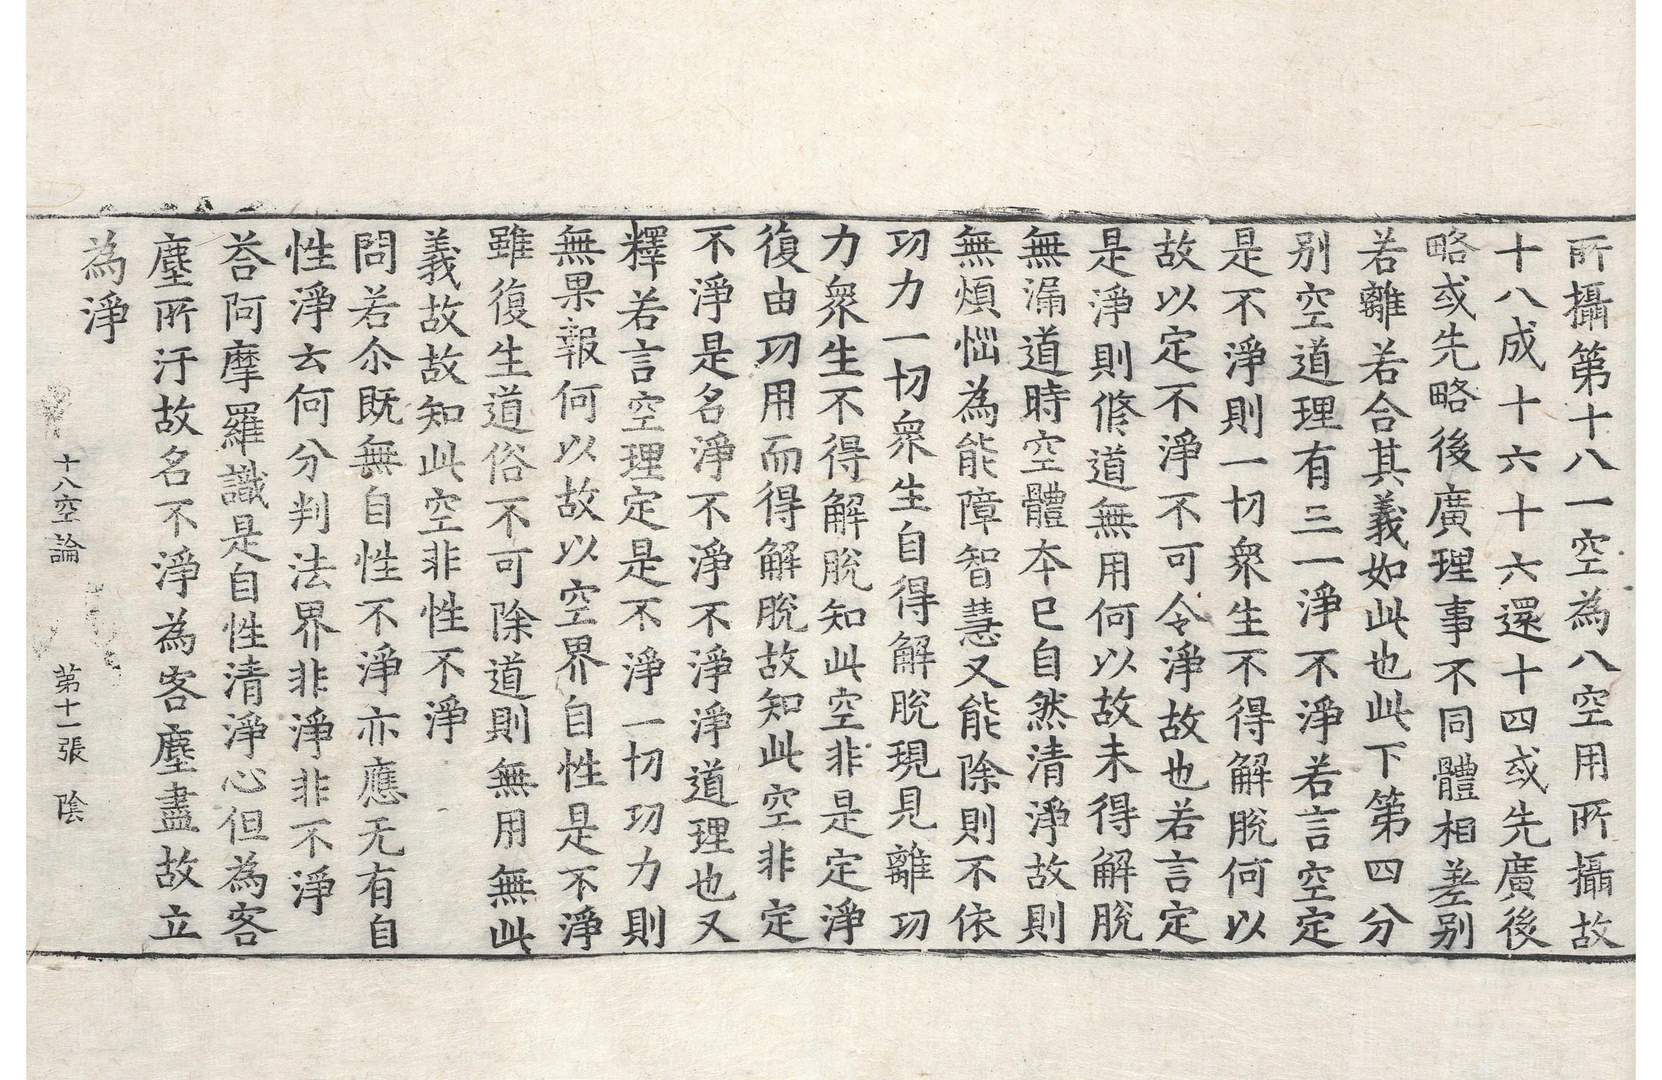 所攝第十八一空為八空用所攝故
十八成十六十六還十四或先廣後
略或先略後廣理事不同體相差别
若離若合其義如此也此下第四分
别空道理有三一淨不淨若言空定
是不淨則一切衆生不得解脫何以
故以定不淨不可令淨故也若言定
是淨則修道無用何以故未得解脫
無漏道時空體本已自然清淨故則
無煩惱為能障智慧又能除則不依
功力一切衆生自得解脫現見離功
力衆生不得解脫知此空非是定淨
復由功用而得解脫故知此空非定
不淨是名淨不淨不淨淨道理也又
釋若言空理定是不淨一切功力則
無果報何以故以空界自性是不淨
雖復生道俗不可除道則無用無此
義故故知此空非性不淨
問若尒既無自性不淨亦應无有自
性淨云何分判法界非淨非不淨
荅阿摩羅識是自性清淨心但為客
塵所汙故名不淨為客塵盡故立
為淨
十八空論 第十一張 陰